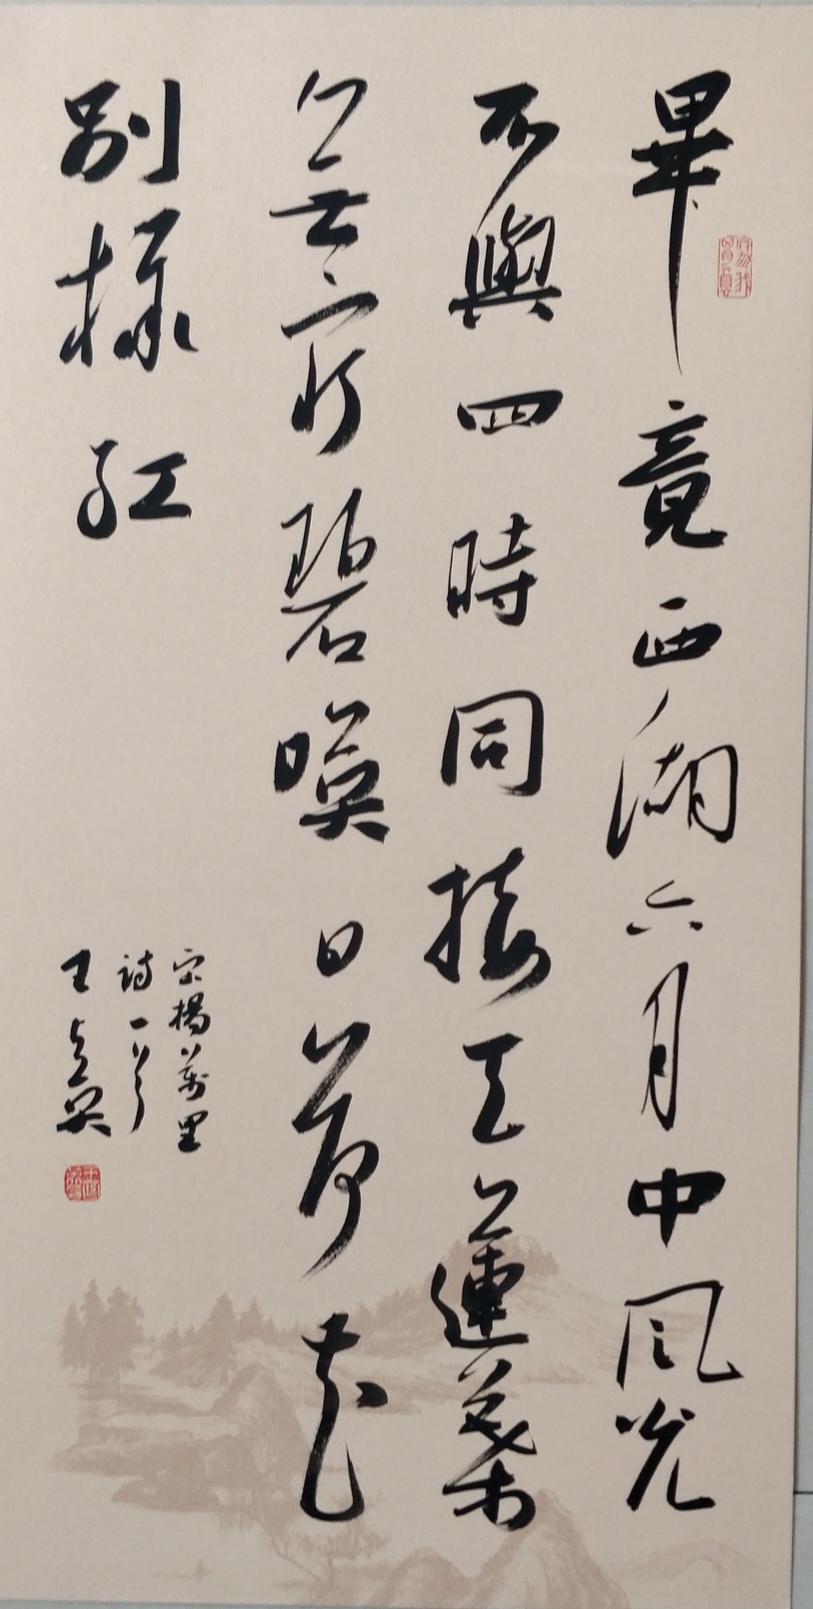 畢竟西湖六月中風光
不與四時同接天蓮葉
無窮碧暎日荷花
別樣紅
宋楊萬里
詩一首
王